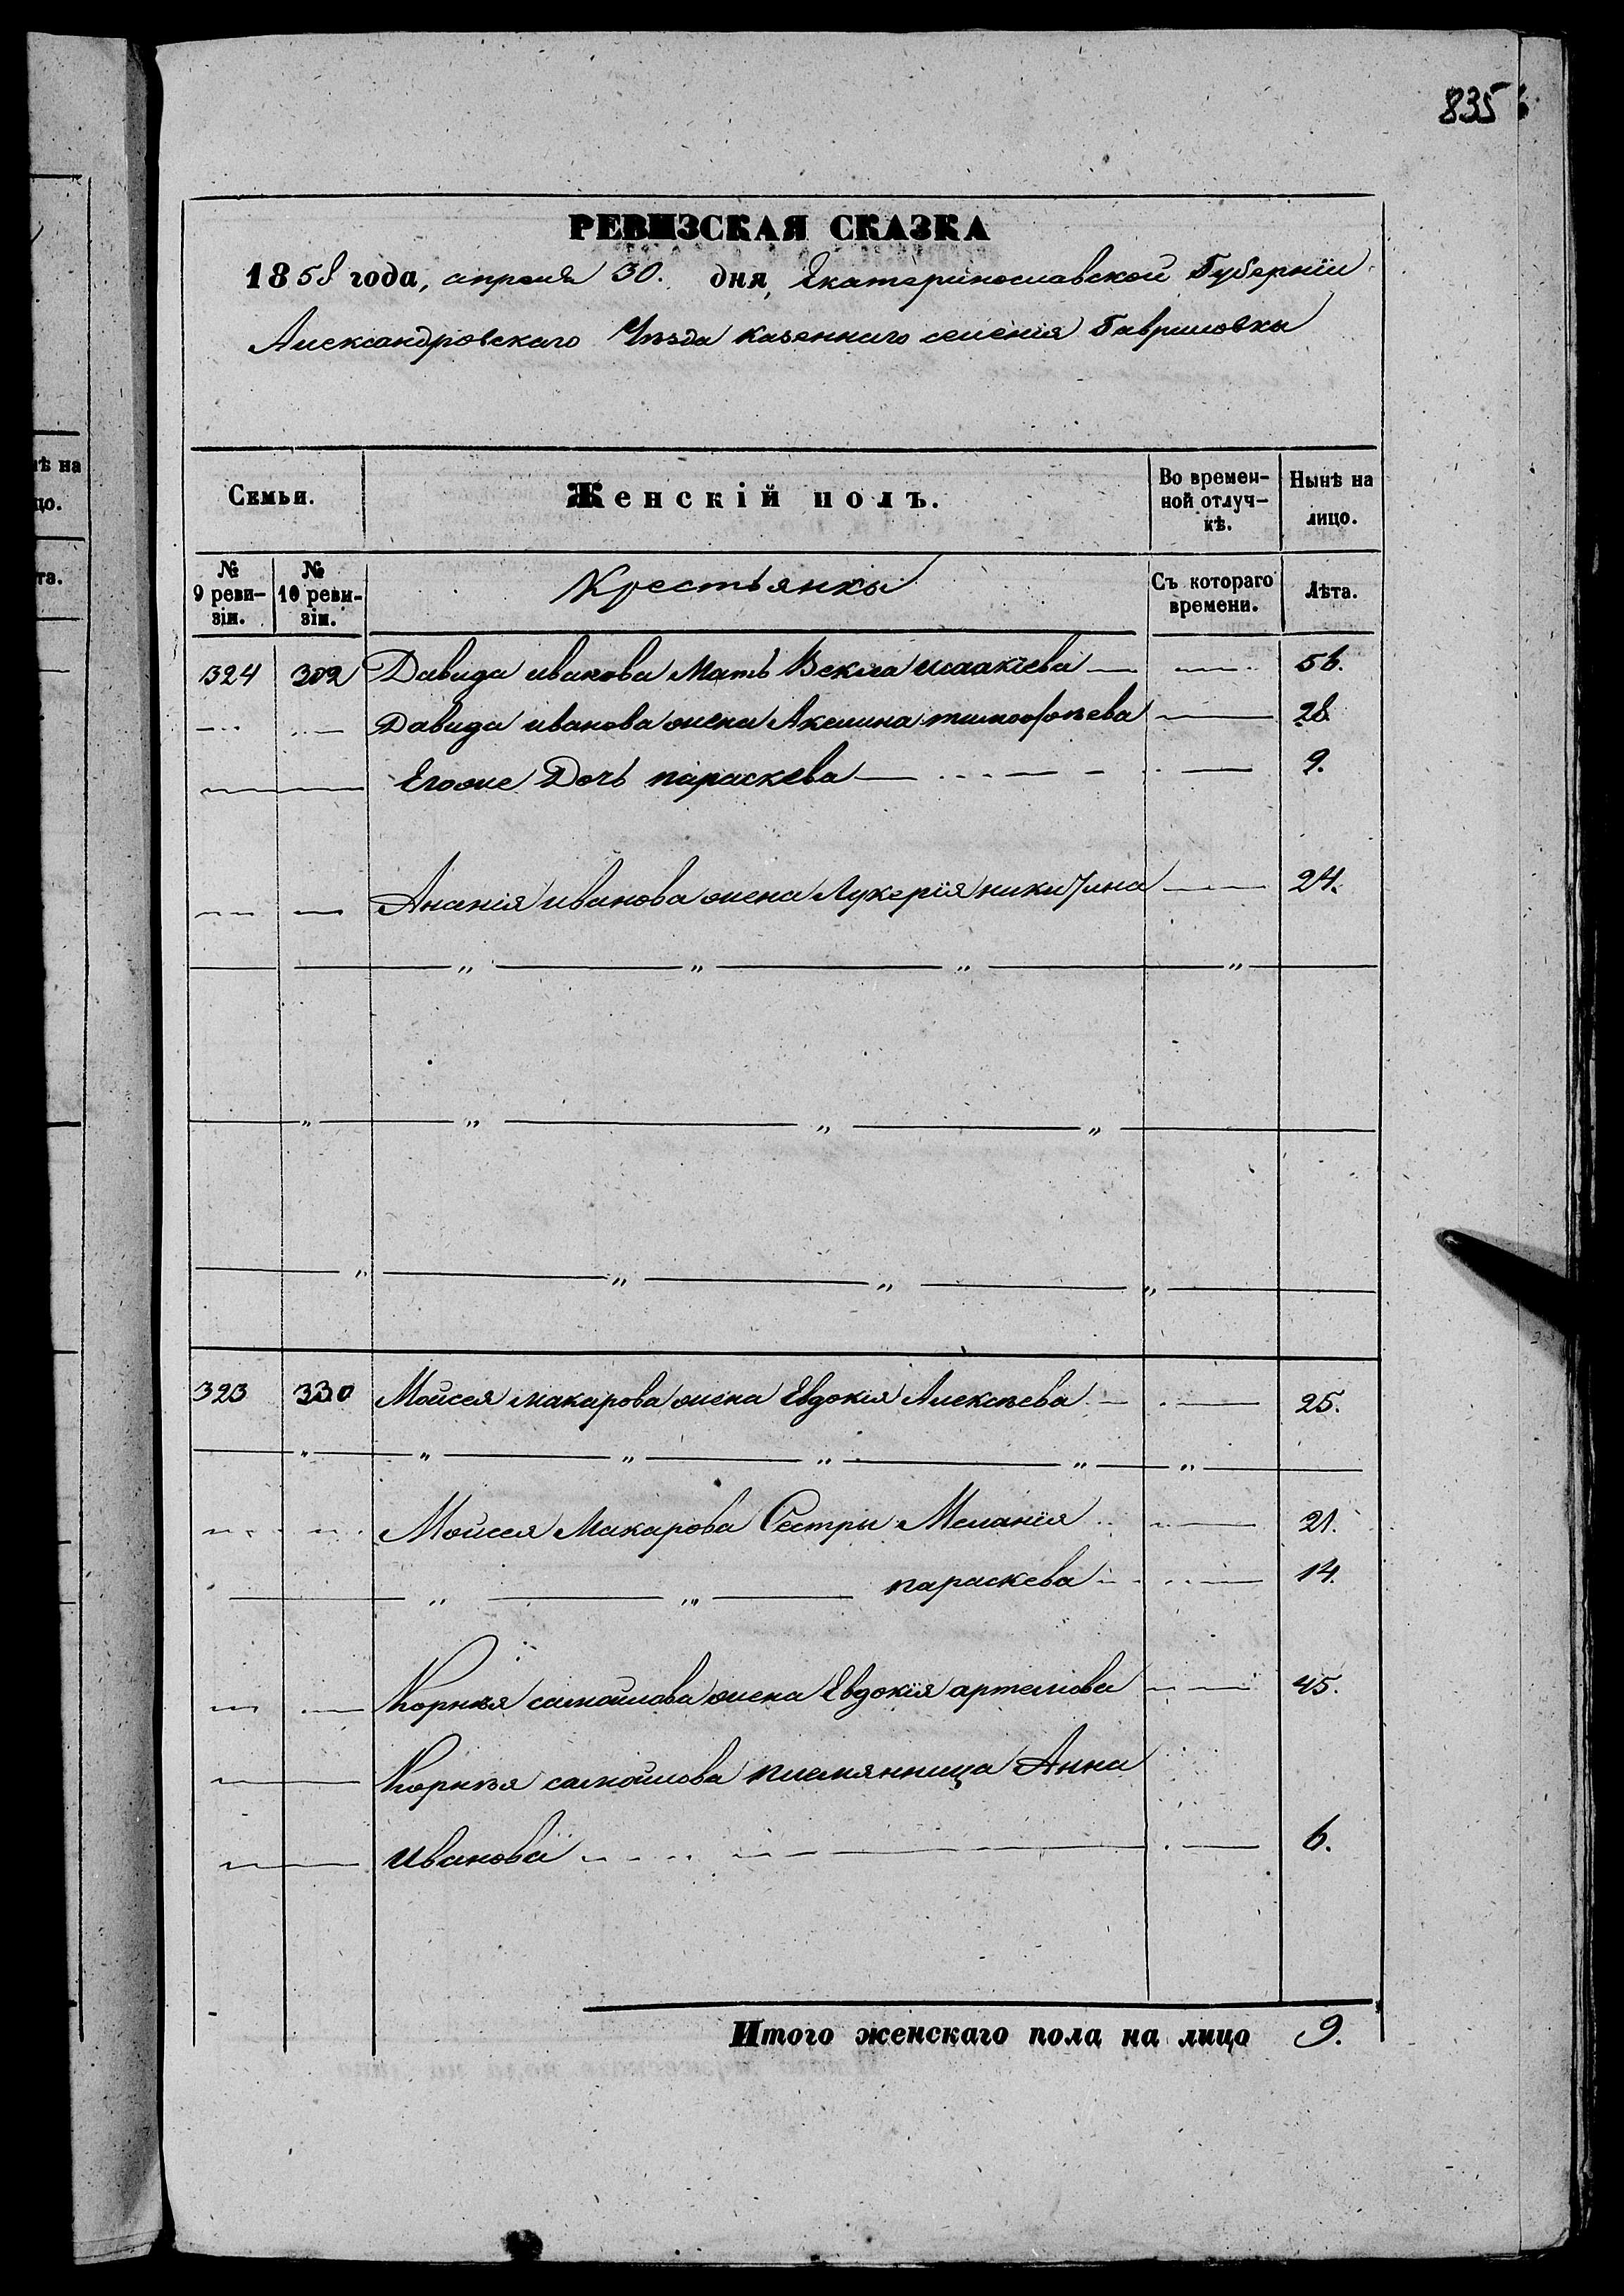 835
РЕВИЗСКАЯ СКАЗКА
1858 года, апреля 30. дня, Екатеринославской Губернiи
Александровскаго Уѣзда казеннаго селенiя Гавриловки
ѣ на
цо.
та.
Семьи. Женскій полъ. Во времен-ной отлуч-кѣ. Нынѣ на лицо.
№ 9 реви-зіи. № 10 реви-зіи. Крестьянки Съ котораго времени. Лѣта.
324 302 Давида иванова Мать Векла исаакiева 56.
Давида иванова жена Акелина тимофѣева 28
Егоже Дочь параскева 9.
Ананiя иванова жена Лукерiя никитина 24.
323 330 Мойсея макарова жена Евдокiя Алексѣева 25.
Мойсея Макарова Сестры Меланiя 21.
параскева 14.
Корнѣя самойлова жена Евдокiя артемова 45.
Корнѣя самойлова племянница Анна
иванова 6.
Итого женскаго пола на лицо 9.